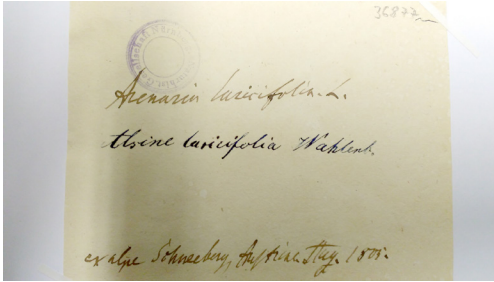 36877
Arenaria laricifolia. L.
Alsine laricifolia Wahlenb.
ex alpe Schneeberg, Austriae. 1805.